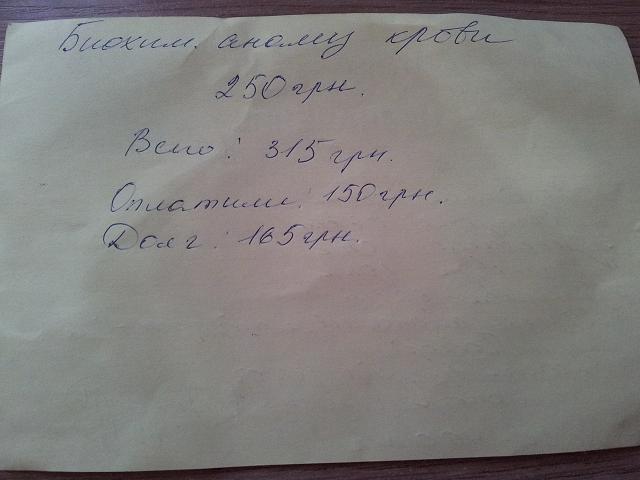 Биохим. анализ крови
250 грн.
Всего: 315 грн.
Оплатили: 150 грн.
Долг: 165 грн.